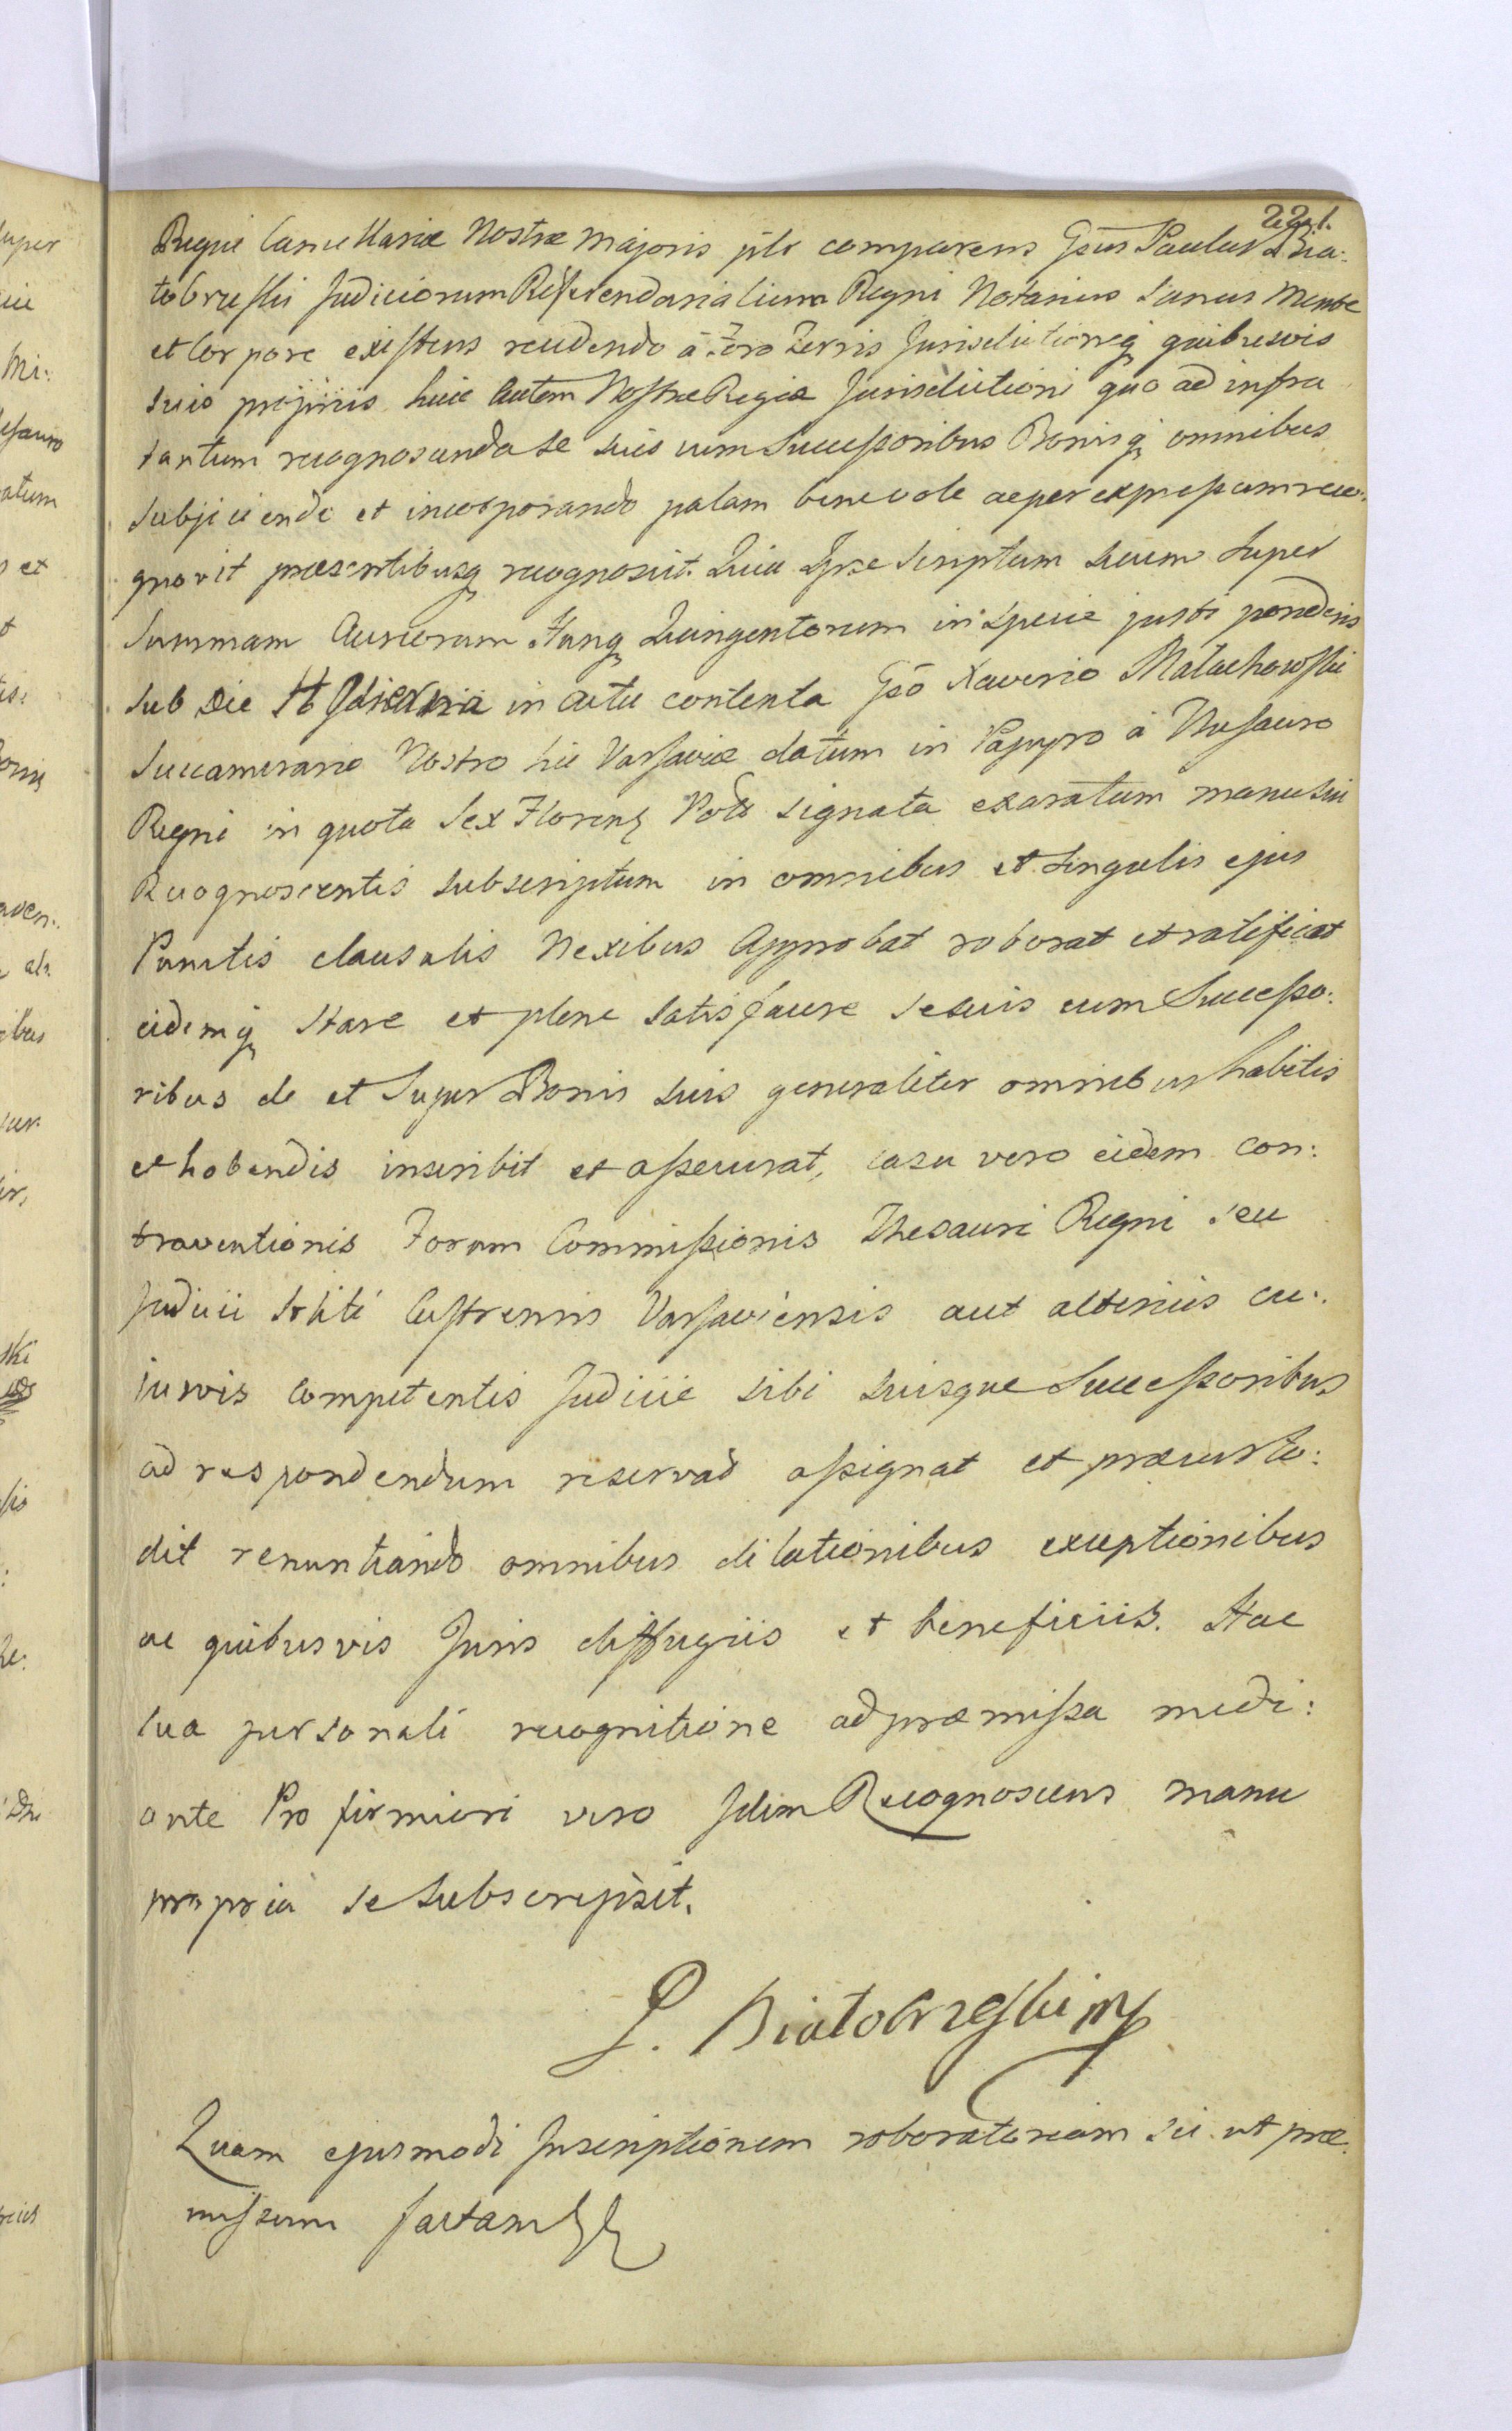 221.
Regni Cancellariæ Nostræ Majoris plr comparens Gsus Paulus Bia:
łobrzeski Judiciorum Referendarialium Regni Notarius Sanus Mente
et Corpore existens recedendo à Foro Terris Jurisdictioneq quibusvis
suis propriis huic autem Nostræ Regiæ Jurisdictioni quo ad infra
tantum recognoscenda se suis cum Successoribus Bonisq omnibus
subjiciendo et incorporando palam benevole ac per expressum reco:
gnovit præsentibusq recognoscit. Quia Ipse Scriptum suum super
Summam Aureorum Hung Quingentorum in specie justi ponderis
sub die in Actu contenta Gso Xaverio Małachowski
Succamerario Nostro hic Varsaviæ datum in Papyro à Thesauro
Regni in quota Sex Floren Pol signata exaratum manu sui
Recognoscentis subscriptum in omnibus et singulis ejus
Punctis clausulis Nexibus Approbat roborat et ratificat
eidemq stare et plene satisfacere se suis cum Successo:
ribus de et super Bonis suis generaliter omnibus habitis
et habendis inscribit et assecurat, casu vero eidem con:
traventionis Forum Commissionis Thesauri Regni seu
Judicii Castrensis Varsaviensis aut alterius cu:
jusvis competentis Judicii sibi suisque Successoribus
ad respondendum reservat assignat et præcusto:
dit renuntiando omnibus dilationibus exceptionibus
ac quibusvis Juris diffugiis et beneficiis. Hac
sua personali recognitione ad præmissa medi:
ante Pro firmiori vero Idem Recognoscens manu
propria se subscripsit.
P. Białobrzeski mp
Quam ejusmodi Inscriptionem roboratoriam sic ut præ:
missum factam